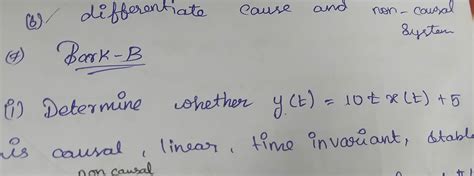 (6) differentiate cause and non-causal
System
(7) Park-B
(i) Determine whether y(t) = 10t x(t) + 5
is causal, linear, time invariant, stabl
non causal